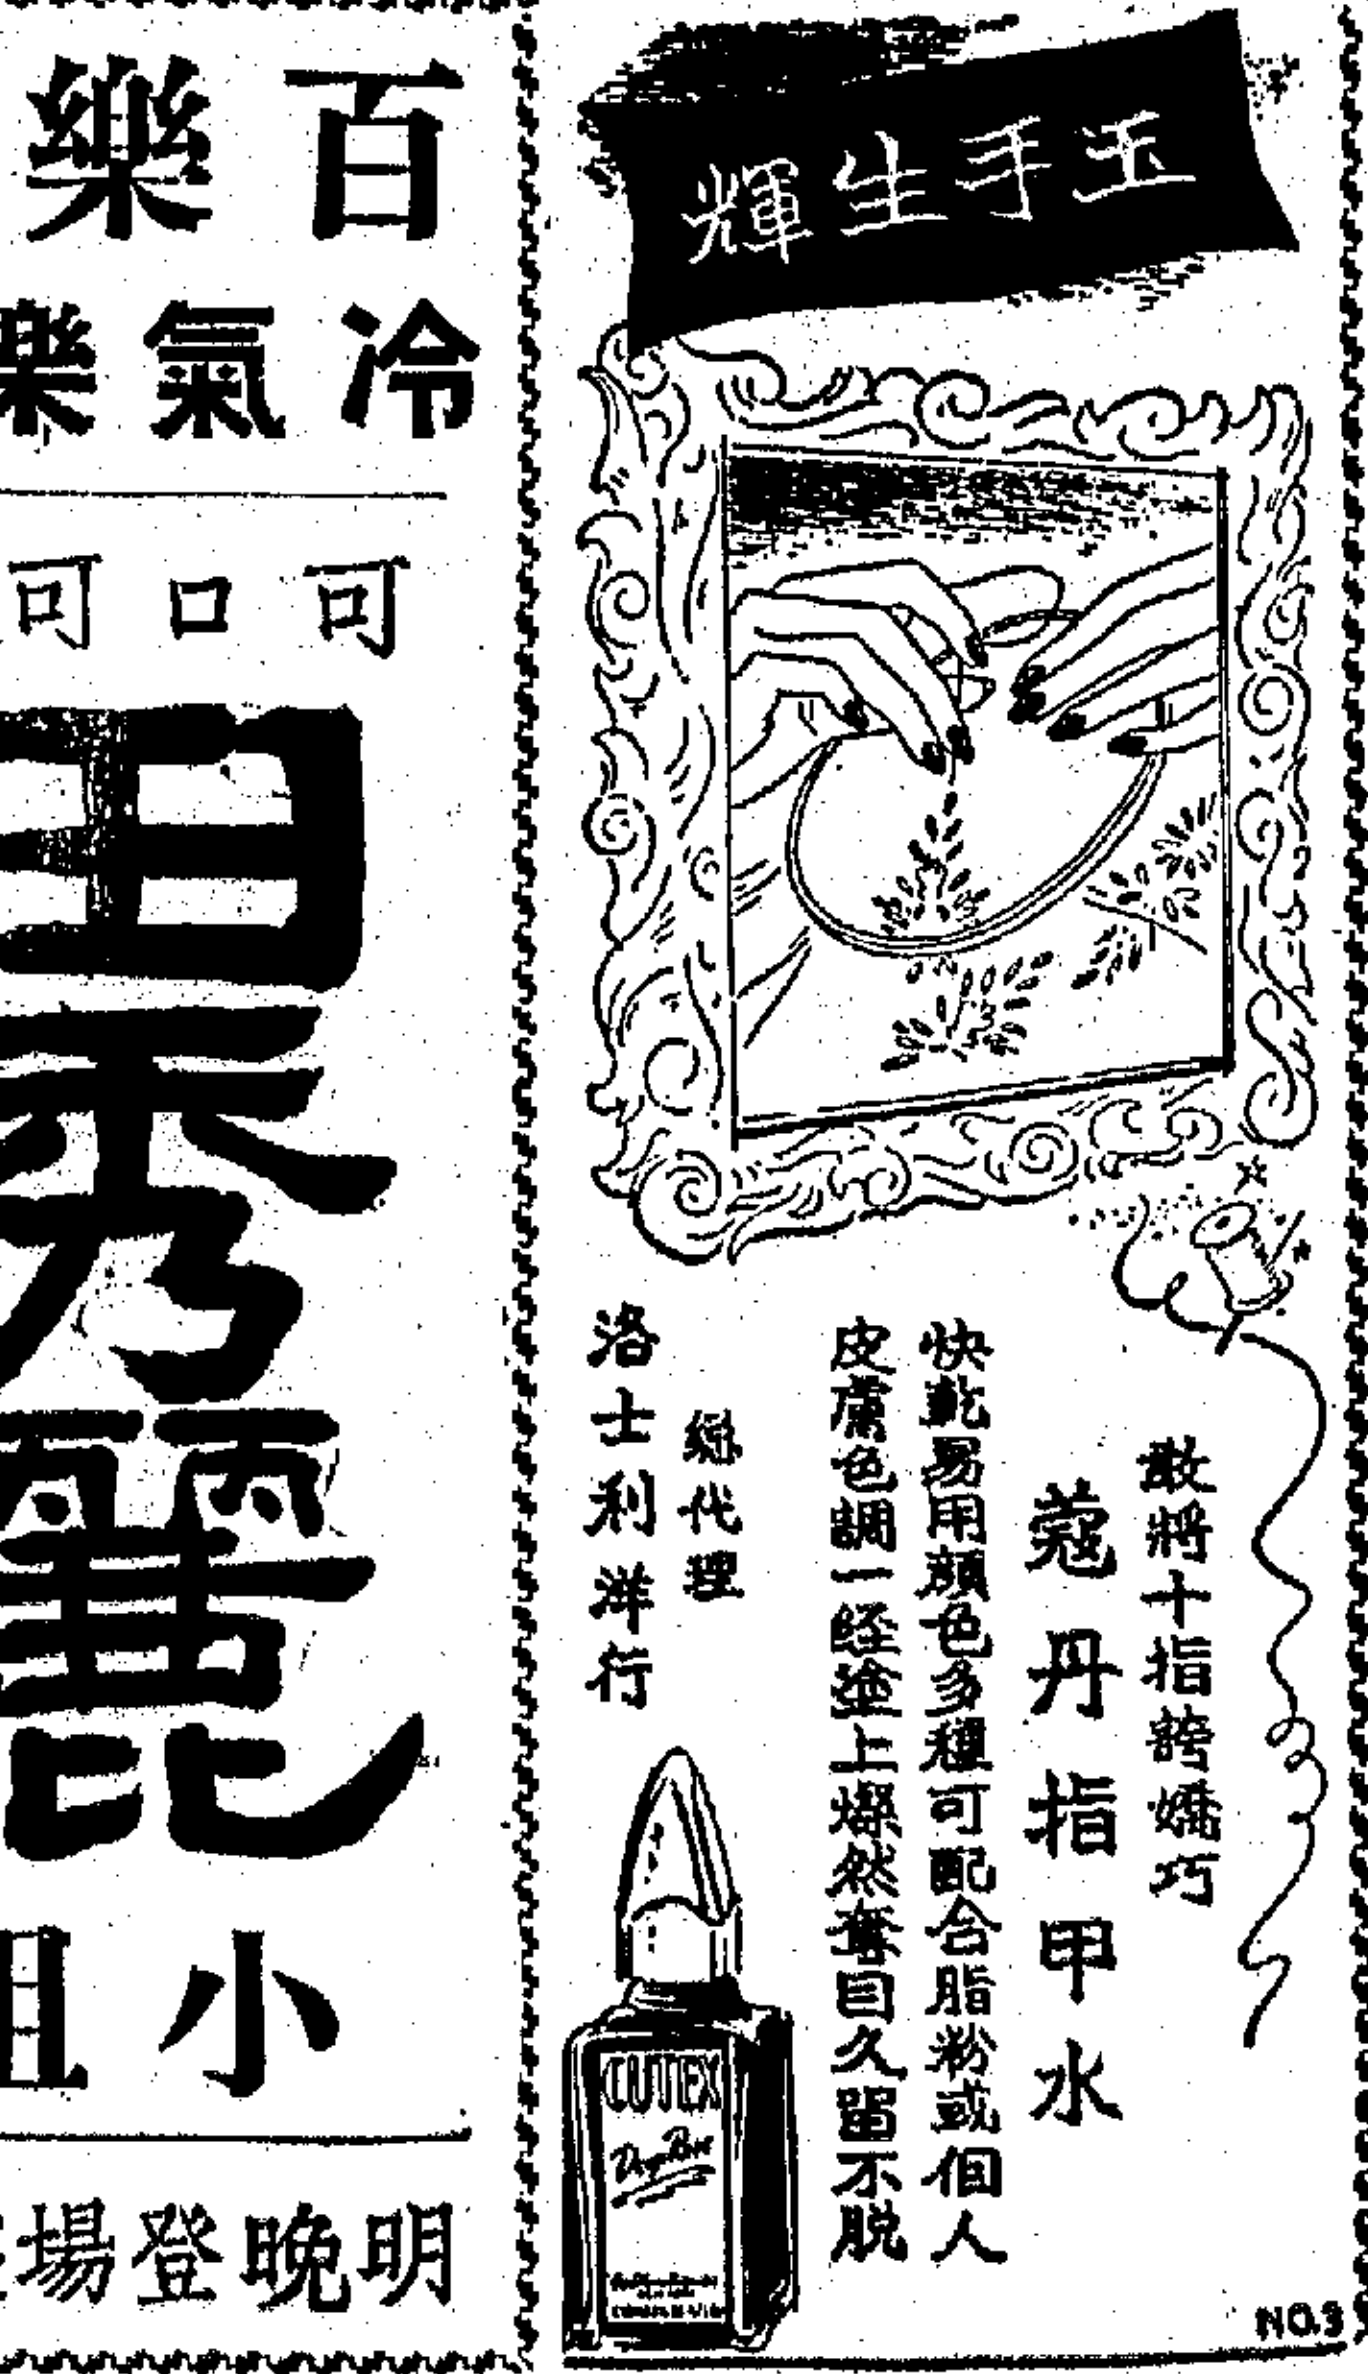 玉手生輝
敢將十指誇嬌巧
蔻丹指甲水
快乾易用顏色多種可配合脂粉或個人
皮膚色調一經塗上燦然奪目久留不脫
總代理
洛士利洋行
CUTEX
NO.3
百樂
冷氣樂
可口可
秀麗
小姐
明晚登場